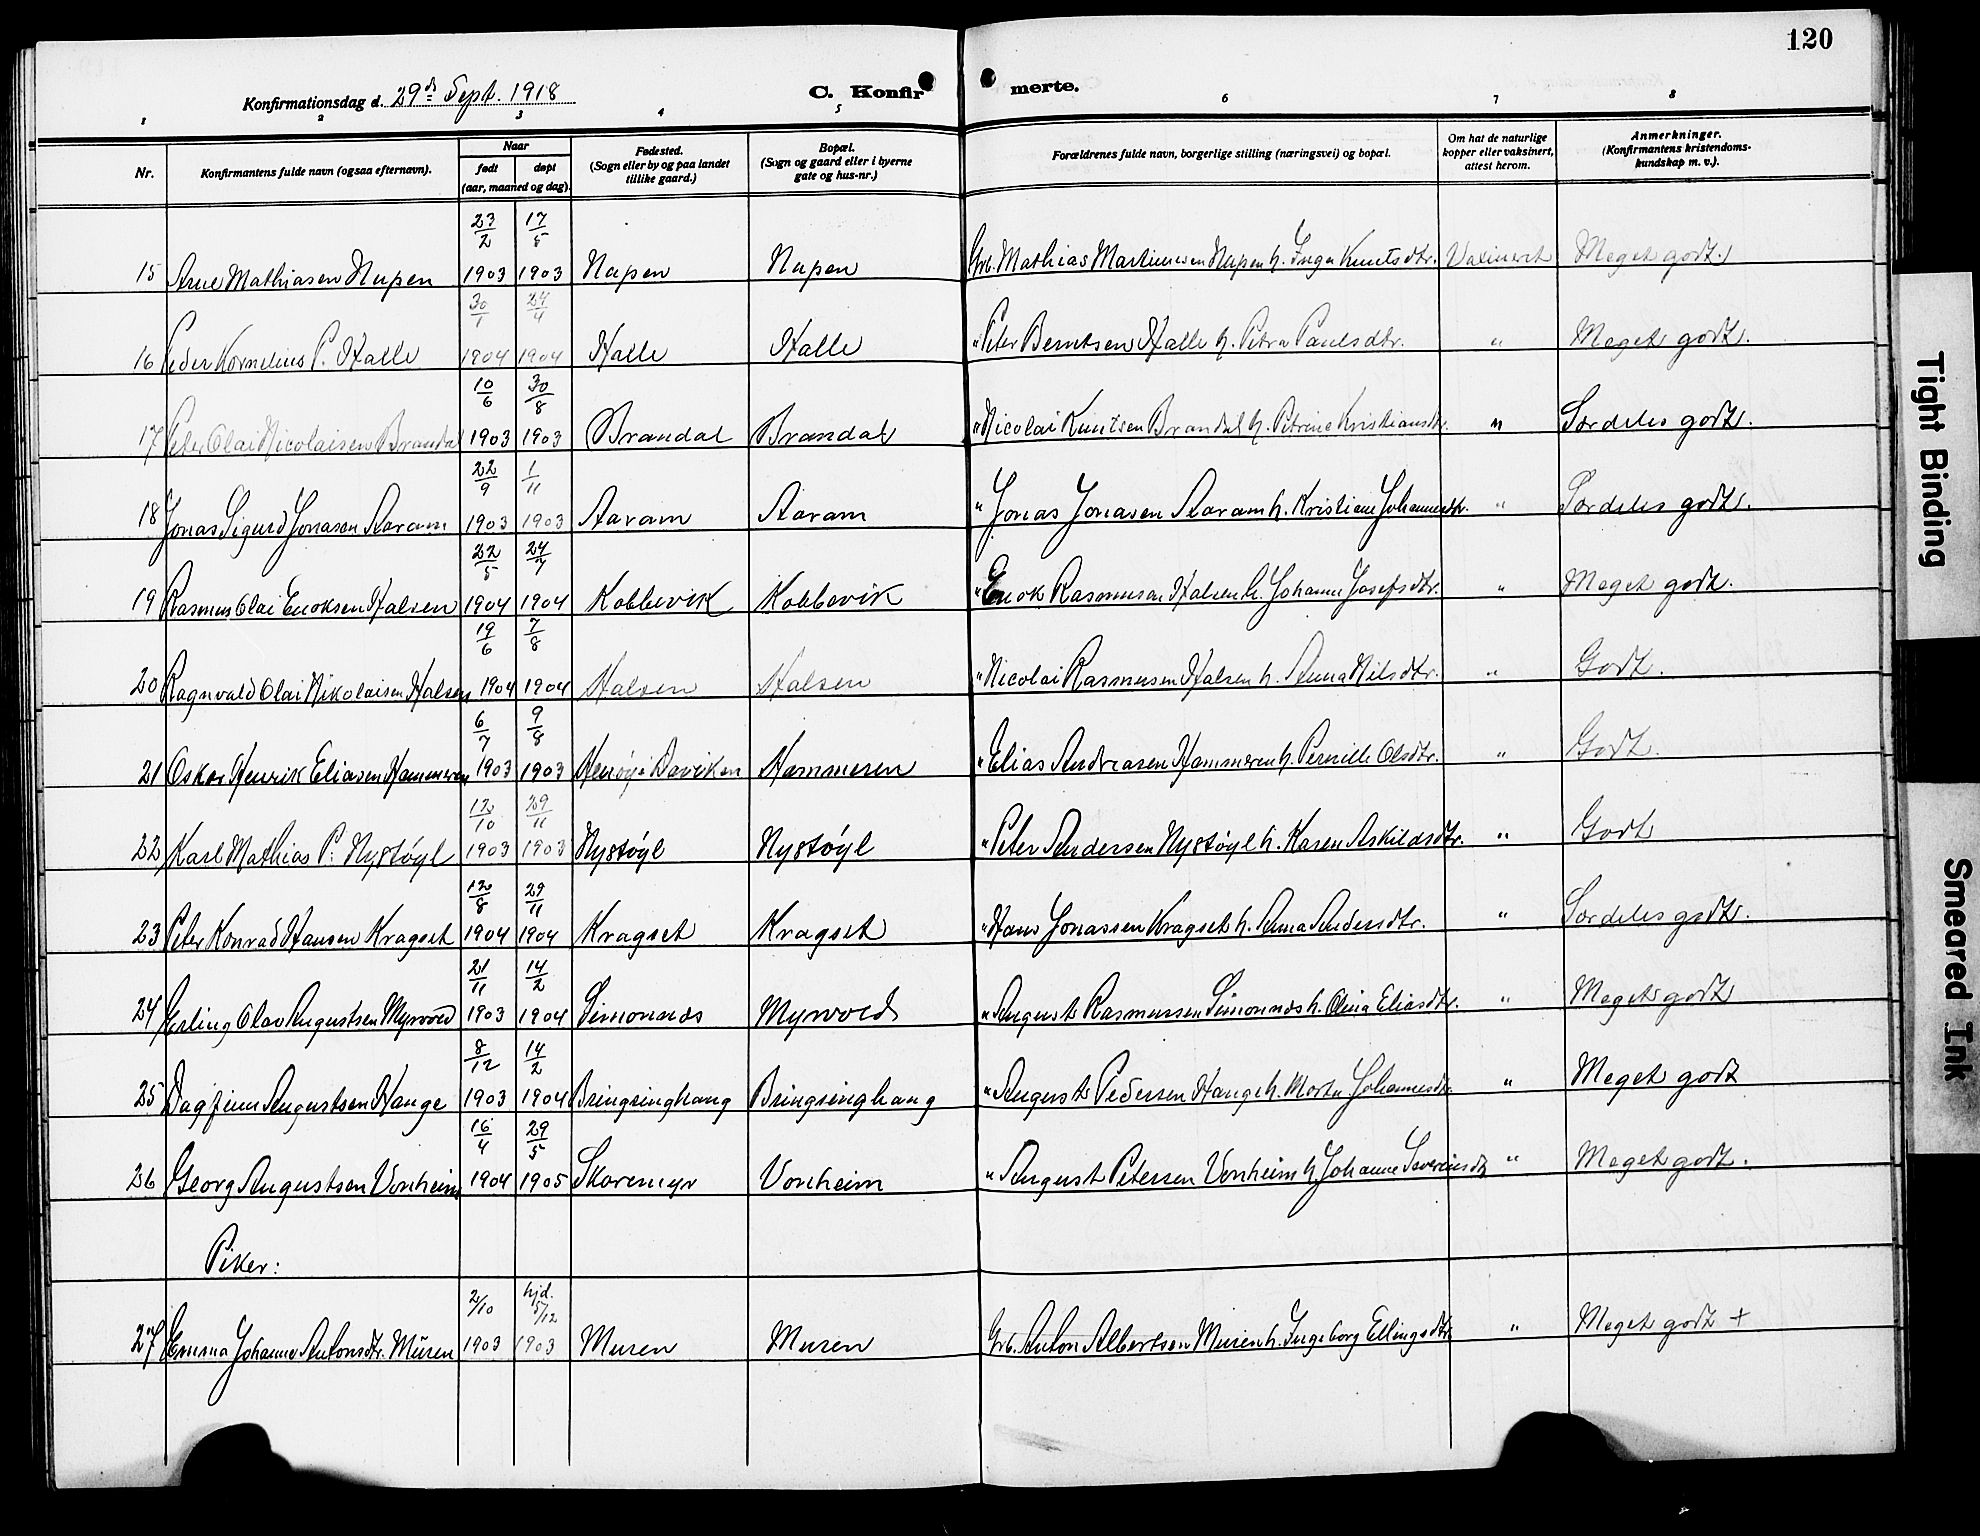 120
Konfirmationsdag d. 29de Sept. 1918
C. Konfir merte.
1 2 3 4 5 6 7 8
Nr.
Konfirmantens fulde navn (ogsaa efternavn).
Naar
født døpt
(aar, maaned og dag).
Fødested.
(Sogn eller by og paa landet
tillike gaard.)
Bopæl.
(Sogn og gaard eller i byerne
gate og hus-nr.)
Forældrenes fulde navn, borgerlige stilling (næringsvei) og bopæl.
Om hat de naturlige
kopper eller vaksinert,
attest herom.
Anmerkninger.
(Konfirmantens kristendoms-
kundskap m. v.).
23/2 17/5
15 Arne Mathiasen Nupen 1903 1903 Nupen Nupen Grb. Mathias Martinusen Nupen h. Inga Knutsdtr. Vaxinert Meget godt.
30/1 24/4
16 Peder Kornelius P. Halle 1904 1904 Halle Halle " Peter Berntsen Halle h. Petra Paulsdtr. " Meget godt.
10/6 30/8
17 Peter Olai Nicolaisen Brandal 1903 1903 Brandal Brandal " Nicolai Knutsen Brandal h. Petrine Kristiansdtr. " Særdeles godt.
22/9 1/11
18 Jonas Sigurd Jonasen Aaram 1903 1903 Aaram Aaram " Jonas Jonasen Aaram h. Kristiane Johannesdtr. " Særdeles godt.
22/5 24/7
19 Rasmus Olai Enoksen Halsen 1904 1904 Kobbevik Kobbevik " Enok Rasmusen Halsen h. Johanne Josefsdtr. " Meget godt.
19/6 7/8
20 Ragnvald Olai Nikolaisen Halsen 1904 1904 Halsen Halsen " Nicolai Rasmusen Halsen h. Anna Nilsdtr. " Godt.
6/7 9/8
21 Oskar Henrik Eliasen Hammeren 1903 1903 Henøy i Daviken Hammeren " Elias Andreasen Hammeren h. Pernille Olsdtr. " Godt.
12/10 29/11
22 Karl Mathias P. Nystøyl 1903 1903 Nystøyl Nystøyl " Peter Andersen Nystøyl h. Karen Askildsdtr. " Godt
12/8 29/11
23 Peter Konrad Hansen Kragset 1904 1904 Kragset Kragset " Hans Jonassen Kragset h. Anna Andersdtr. " Særdeles godt.
21/11 14/2
24 Erling Olav Augustsen Myrvold 1903 1904 Simonnes Myrvold " August Rasmussen Simonnes h. Olina Eliasdtr. " Meget godt
8/12 14/2
25 Dagfinn Augustsen Hauge 1903 1904 Bringsinghaug Bringsinghaug " August Pedersen Hauge h. Marta Johannesdtr. " Meget godt
16/4 29/5
26 Georg Augustsen Vonheim 1904 1905 Skoremyr Vonheim " August Petersen Vonheim h. Johanne Severinsdtr " Meget godt.
Piker:
2/10 hjd. 5/12
27 Emma Johanne Antonsdtr. Muren 1903 1903 Muren Muren Grb. Anton Albertsen Muren h. Ingeborg Ellingsdtr. " Meget godt +
Tight Binding
Smeared Ink